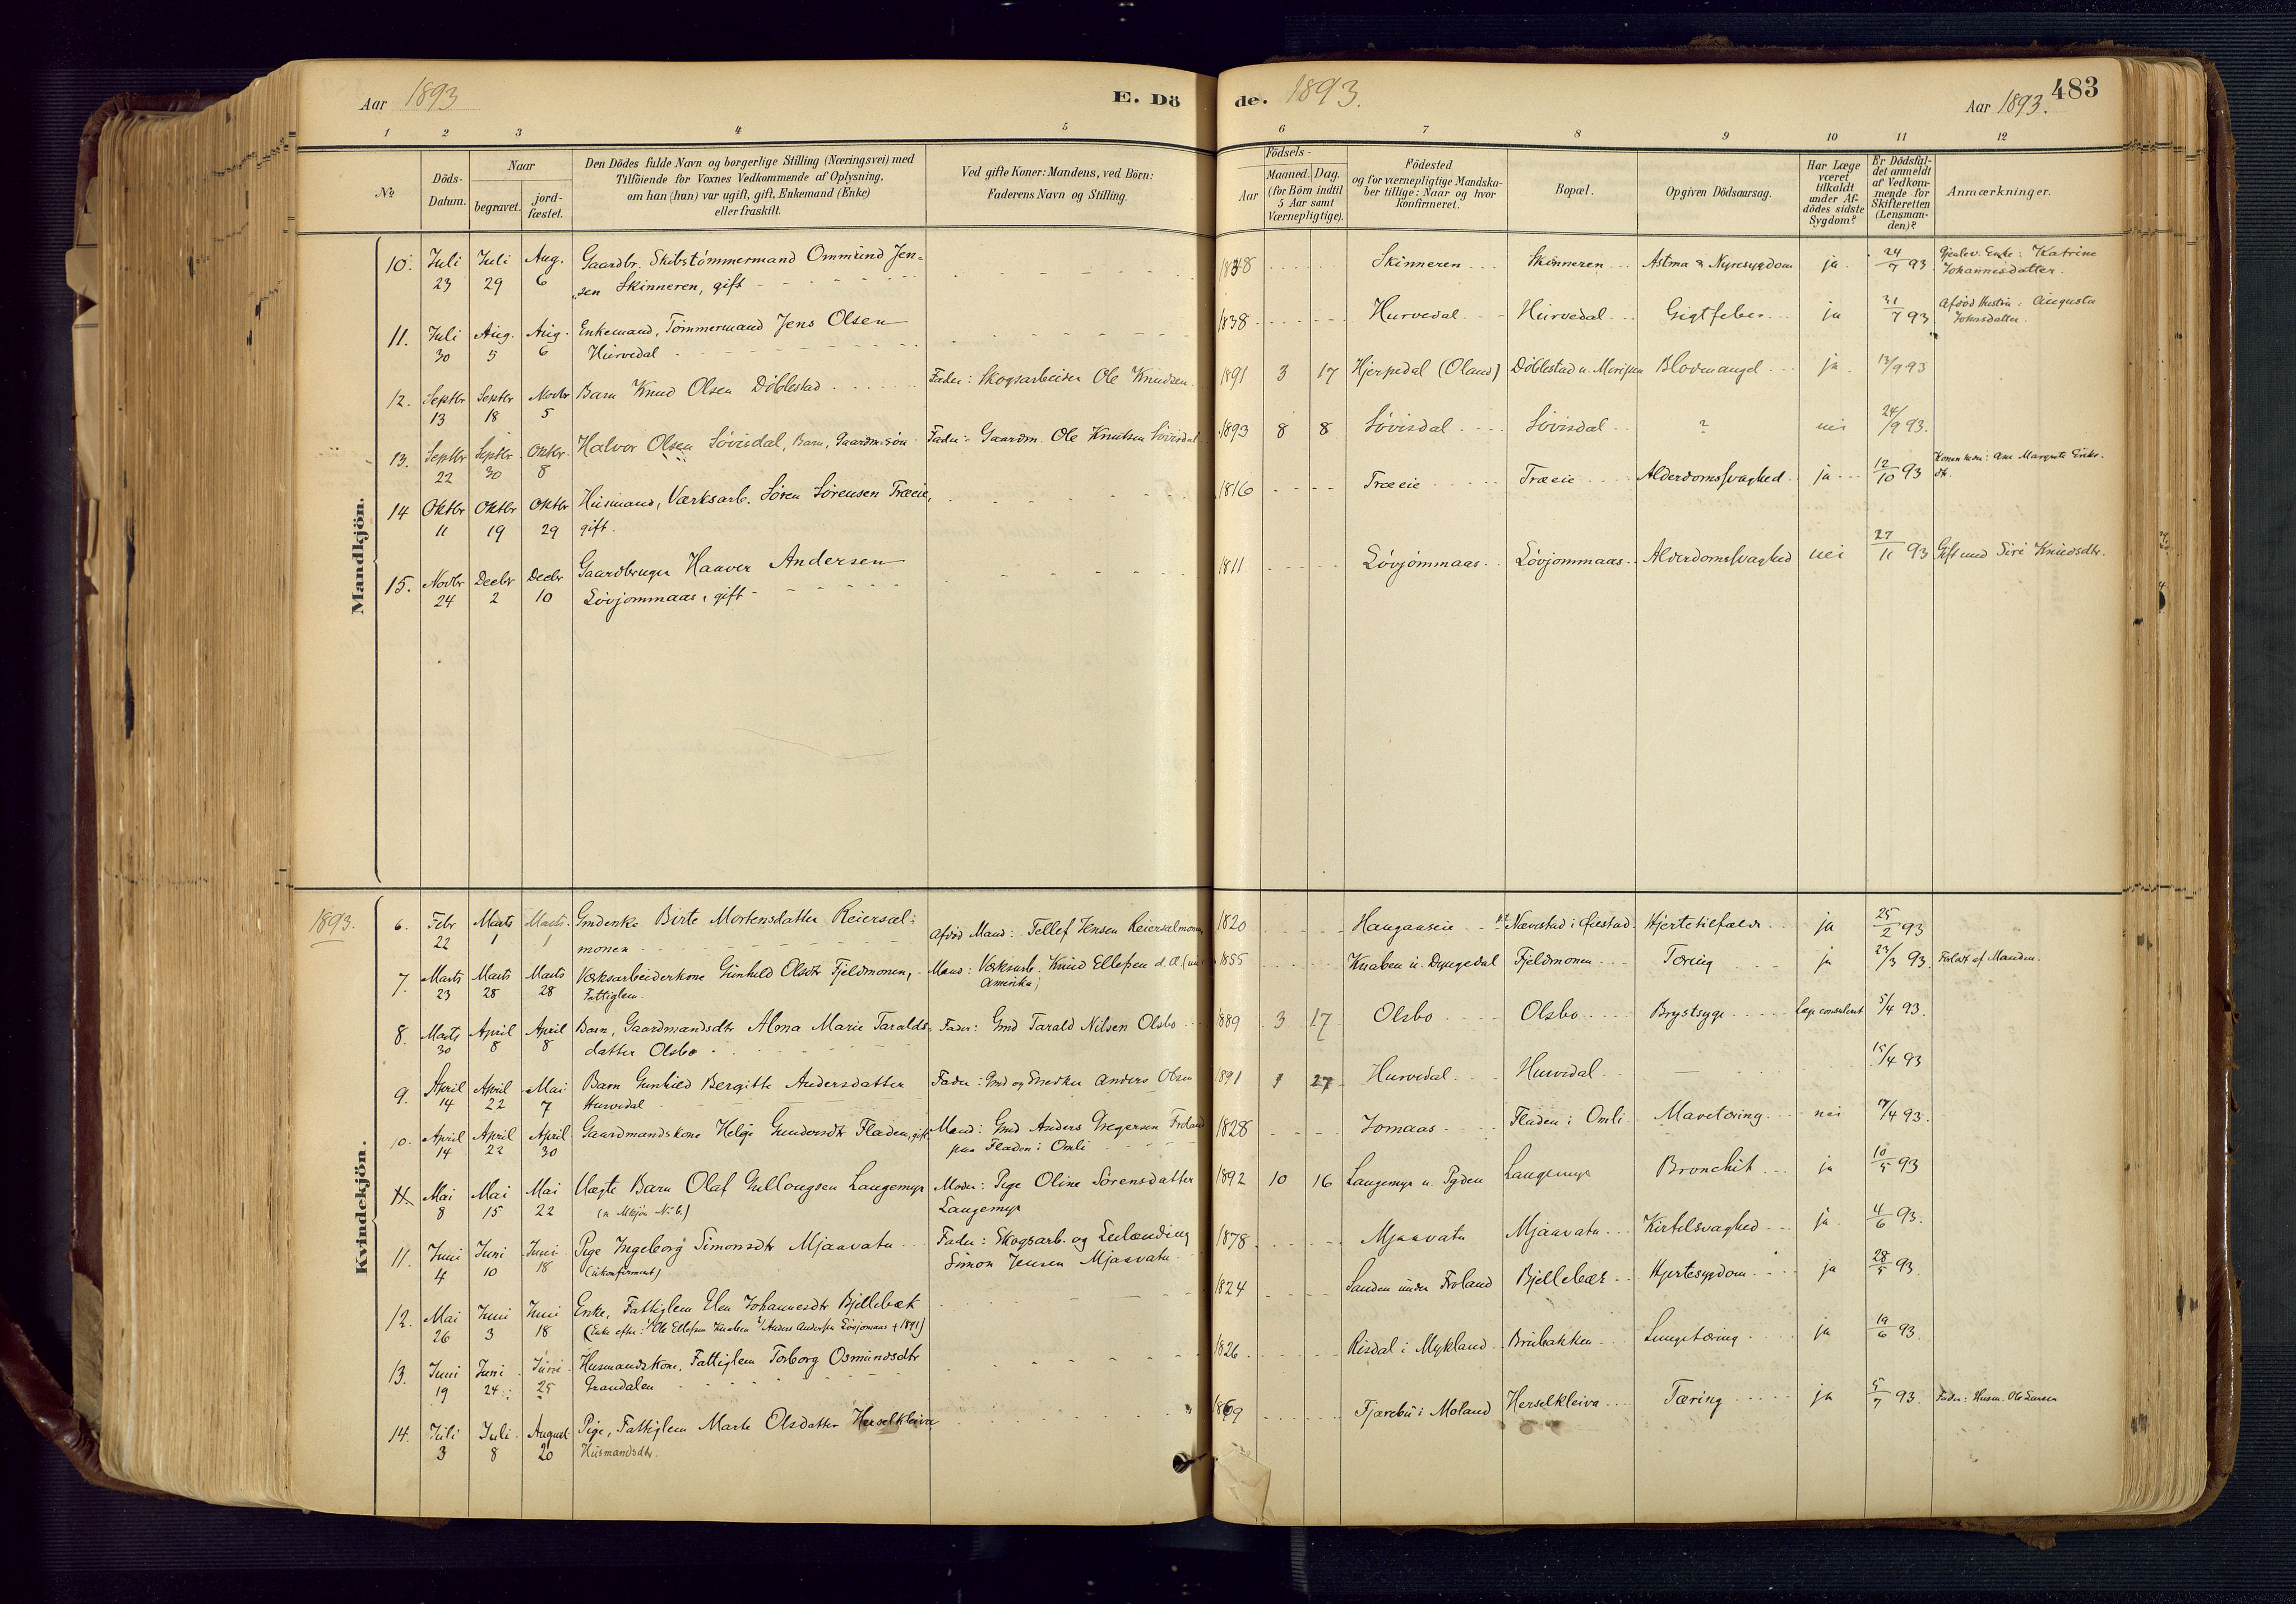 Aar 1893
E. Dö
de. 1893.
Aar 1893.
483
1 2 3 4 5 6 7 8 9 10 11 12
№
Döds-
Datum.
Naar
begravet.
jord-
fæstet.
Den Dödes fulde Navn og borgerlige Stilling (Næringsvei) med
Tilföiende for Voxnes Vedkommende af Oplysning,
om han (hun) var ugift, gift, Enkemand (Enke)
eller fraskilt.
Ved gifte Koner: Mandens, ved Börn:
Faderens Navn og Stilling.
Födsels-
Aar
Maaned. Dag.
(for Börn indtil
5 Aar samt
Værnepligtige).
Födested
og for værnepligtige Mandska-
ber tillige: Naar og hvor
konfirmeret.
Bopæl.
Opgiven Dödsaarsag.
Har Læge
været
tilkaldt
under Af-
dödes sidste
Sygdom?
Er Dödsfal-
det anmeldt
af Vedkom-
mende for
Skifteretten
(Lensman-
den)?
Anmærkninger.
Mandkjön.
10. Juli Juli Aug. Gaardbr. Skibstömmermand Ommund Jen-
23 29 6 sen Skinneren, gift
1848 Skinneren Skinneren Astma & Nyresygdom ja 24/7 93 Gjenlev. Enke: Katrine
Johannesdatter.
11. Juli Aug. Aug. Enkemand, Tömmermand Jens Olsen
30 5 6 Hurvedal
1838 Hurvedal Hurvedal Gigtfeber ja 31/7 93 Afdöd Hustru: Augusta
Johnsdatter.
12. Septbr Septbr Novbr Barn Knud Olsen Döblestad Fader: Skogsarbeider Ole Knudsen
13 18 5
1891 3 17 Hjerpedal (Oland) Döblestad u. Blodmangel ja 13/9 93
13. Septbr Septbr Oktbr. Halvor Olsen Lövisdal, Barn, Gaardm.sön Fader: Gaardm. Ole Knutsen Lövisdal
22 30 8
1893 8 8 Lövisdal Lövisdal ? nei 24/9 93.
14 Oktbr Oktbr Oktbr Husmand, Værksarb. Sören Sörensen Træeie,
11 19 29 gift.
1816 Træeie Træeie Alderdomssvaghed ja 12/10 93 Konen heder: Ane Margrete Eriks-
dtr.
15. Novbr Decbr Decbr Gaardbruger Haaver Andersen
24 2 10 Lövjommaas, gift
1811 Lövjommaas Lövjommaas Alderdomssvaghed nei 27/11 93 Gift med Siri Knudsdtr.
1893.
Kvindekjön.
6. Febr Marts Marts Gmdenke Birte Mortensdatter Reiersøl-
22 1 1 monen
Afdöd Mand: Tellef Jensen Reiersølmonen
1820 Haugaaseie Nævestad i Øiestad Hjertetilfælde ja 25/2 93
7. Marts Marts Marts Værksarbeiderkone Gunhild Olsdtr Fjeldmonen, Mand: Værksarb. Knud Ellefsen
23 28 28 Fattiglem. Amerika)
1855 Knaben u. Dyngedal Fjeldmonen Tæring ja 23/3 93 Forladt af Manden.
8. Marts April April Barn, Gaardmandsdtr Alma Marie Taralds- Fader: Gmd Tarald Nilsen Olsbo
30 8 8 datter Olsbo
1889 3 17 Olsbo Olsbo Brystsyge Læge consuleret 5/4 93.
9. April April Mai Barn Gunhild Bergitte Andersdatter Fader: Gmd og Snedker Anders Olsen
14 22 7 Hurvedal
1891 1 27 Hurvedal Hurvedal — 15/4 93
10. April April April Gaardmandskone Helge Gundersdtr Fladen, gift. Mand: Gmd Anders Gregersen Froland
14 22 30 paa Fladen i Omli
1828 Jomaas Fladen i Omli Mavetæring nei 17/4 93.
11 Mai Mai Mai Uægte Barn Olaf Gullougsen Langemyr Moder: Pige Oline Sörensdatter
8 15 22 (se Mkjön No 6.) Langemyr
1892 10 16 Langemyr u. Langemyr Bronchit ja 10/5 93
11. Juni Juni Juni Pige Ingeborg Simonsdtr Mjaavatn Fader: Skogsarb. og Leilænding
4 10 18 (ukonfirmert) Simon Jensen Mjaavatn
1878 Mjaavatn Mjaavatn Kirtelsvaghed ja 4/6 93.
12. Mai Juni Juni Enke, Fattiglem Elen Johannesdtr Bjellebæk
26 3 18 (Enke efter: 1/ Ole Ellefsen Knaben 2/ Anders Andersen Lövjomaas + 1891)
1824 Sanden under Froland Bjellebæk Hjertesygdom ja 28/5 93
13. Juni Juni Juni Husmandskone, Fattiglem Torborg Osmundsdtr
19 24 25 Grandalen
1826 Risdal i Mykland Brubakken Lungetæring ja 19/6 93
14. Juli Juli August Pige, Fattiglem Marte Olsdatter Herselkleiva
3 8 20 Husmandsdtr.
1869 Tjærebu i Moland Herselkleiva Tæring ja 5/7 93. Fader: Husm. Ole Larsen